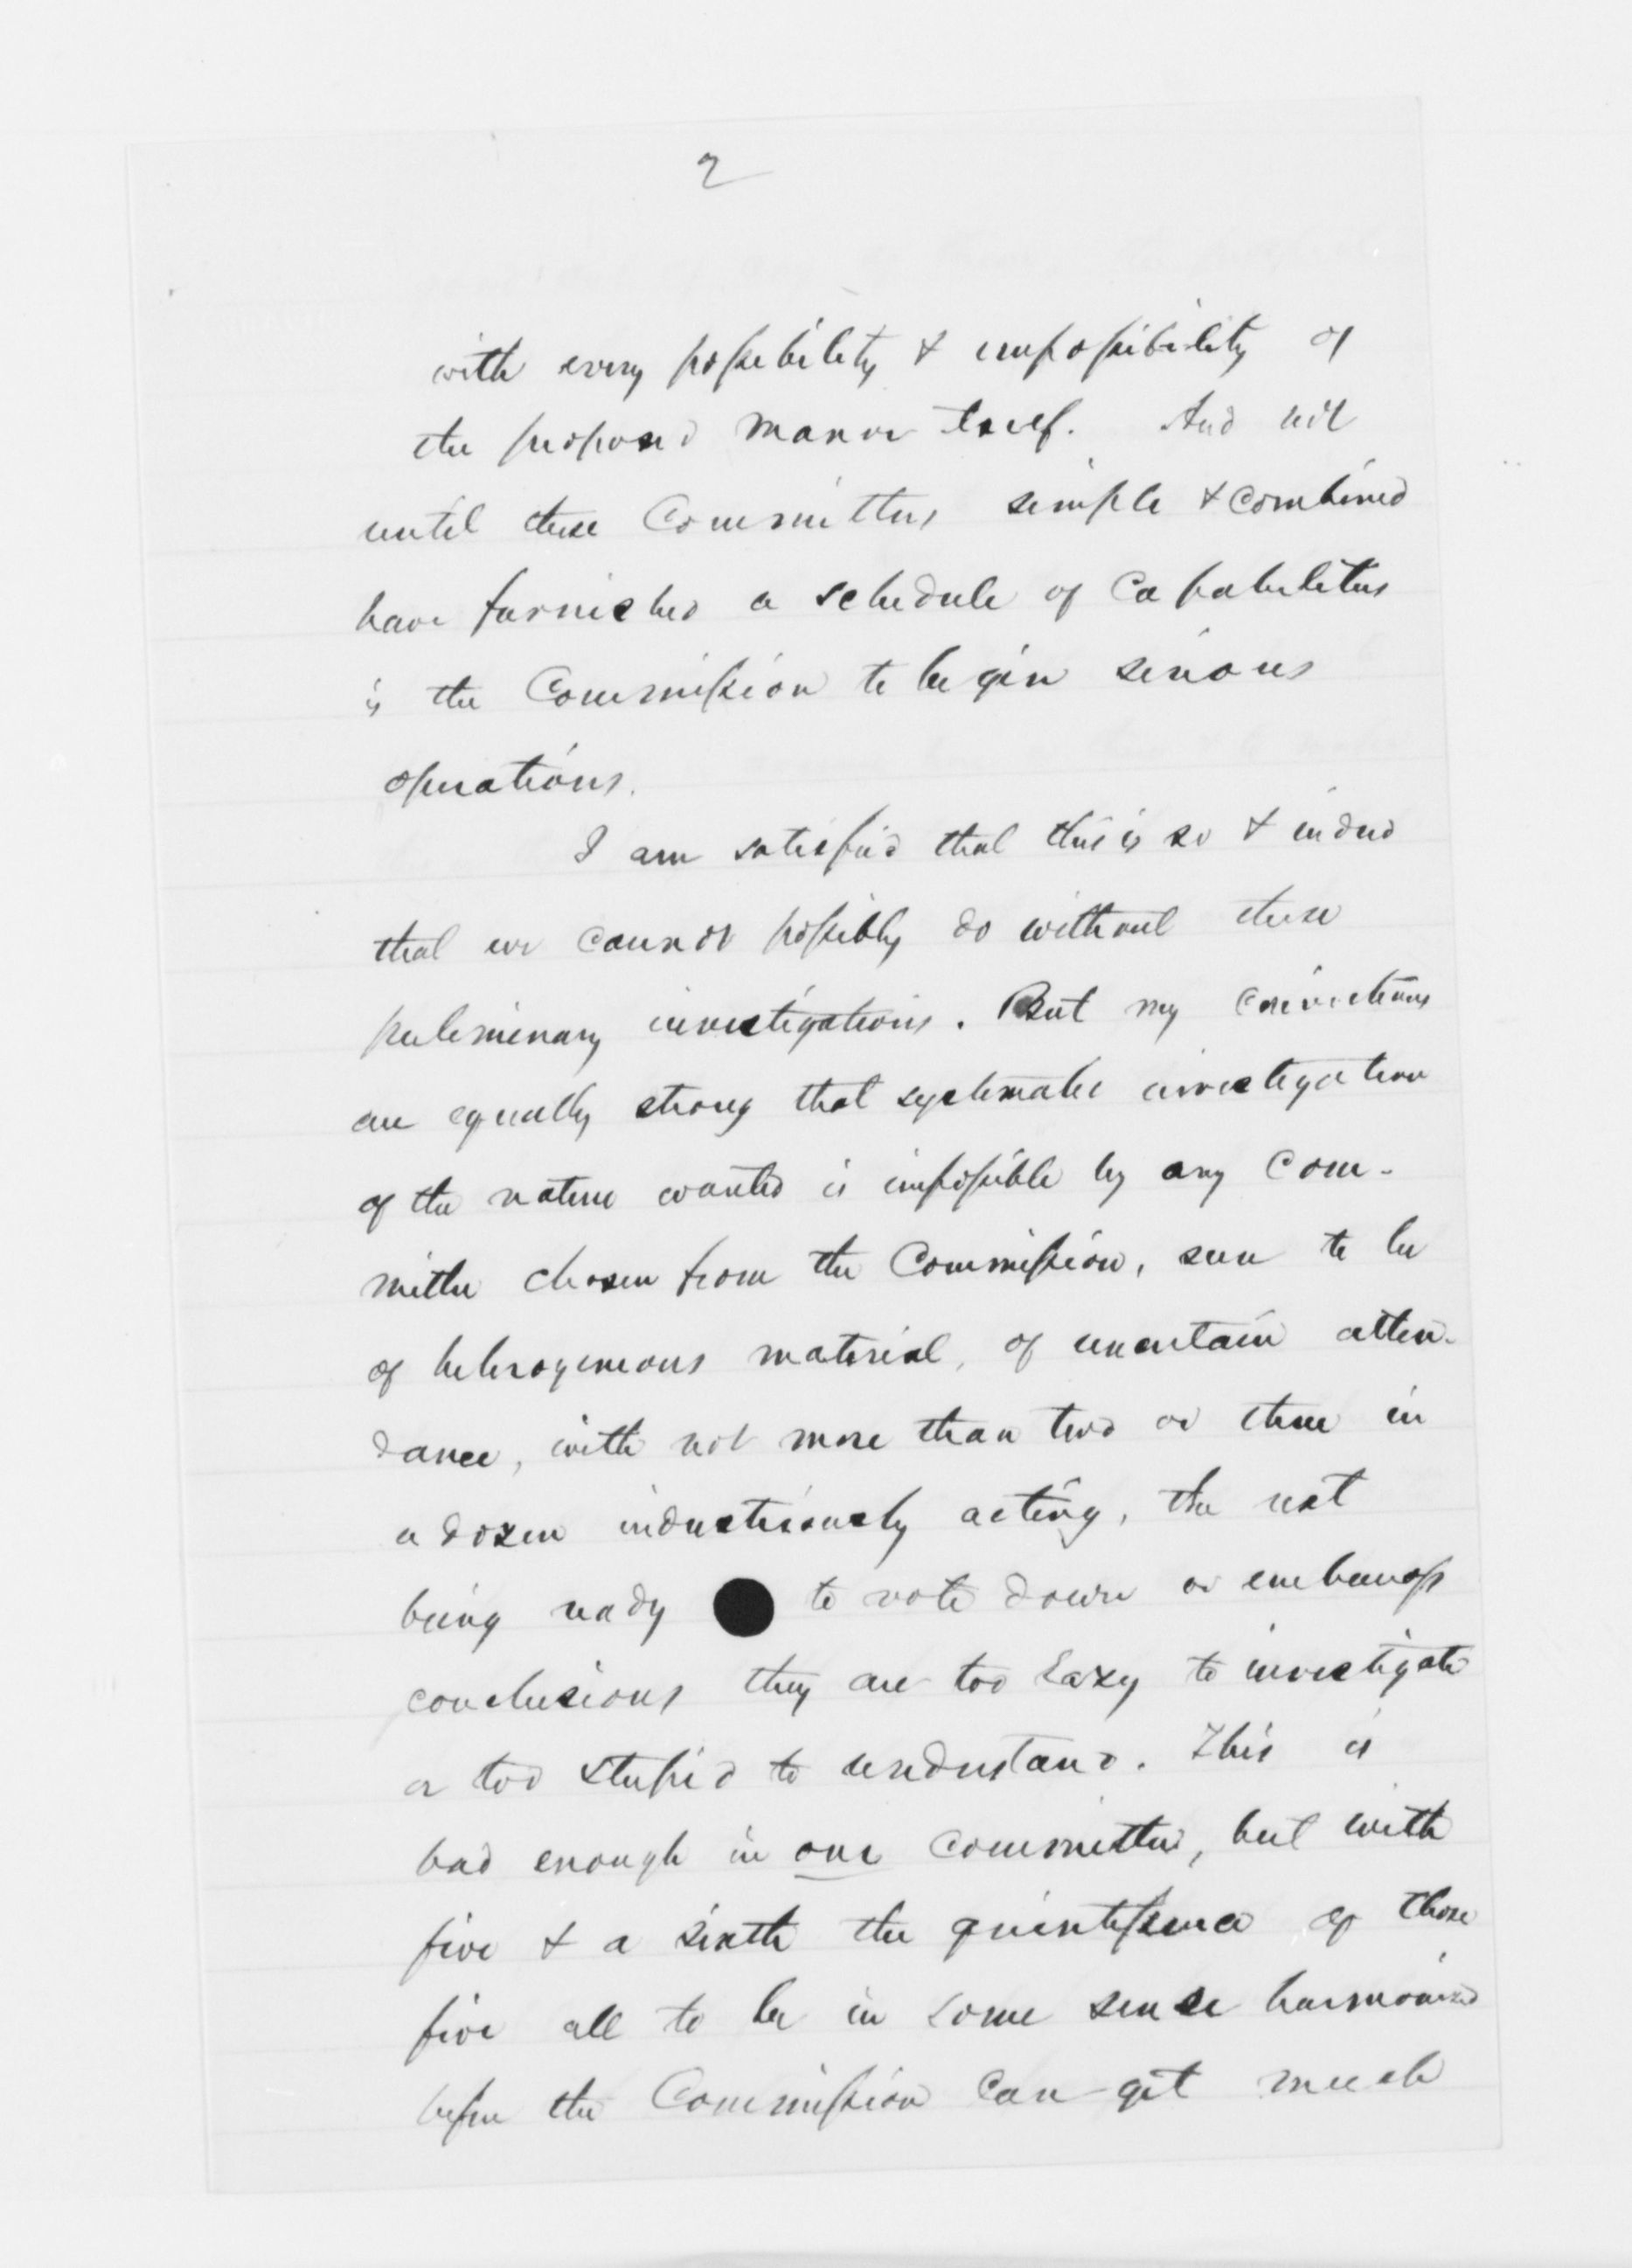 2
with every possibility & impossibility of
the proposed manor itself. And not
until these Committees simple & combined
have furnished a schedule of Capabilities
is the Commission to begin serious
operations.
I am satisfied that this is so & indeed
that we cannot possibly do without these
preliminary investigations. But my convictions
are equally strong that systematic investigation
of the nature wanted is impossible by any Com-
mittee chosen from the Commission, sure to be
of heterogeneous material, of uncertain atten-
dance, with not more than two or three in
a dozen industriously acting, the rest
being ready to vote down or embarrass
conclusions they are too lazy to investigate
or too stupid to understand. This is
bad enough in one committee, but with
five & a sixth the quintessence of those
five all to be in some sense harmonized
before the Commission can get much